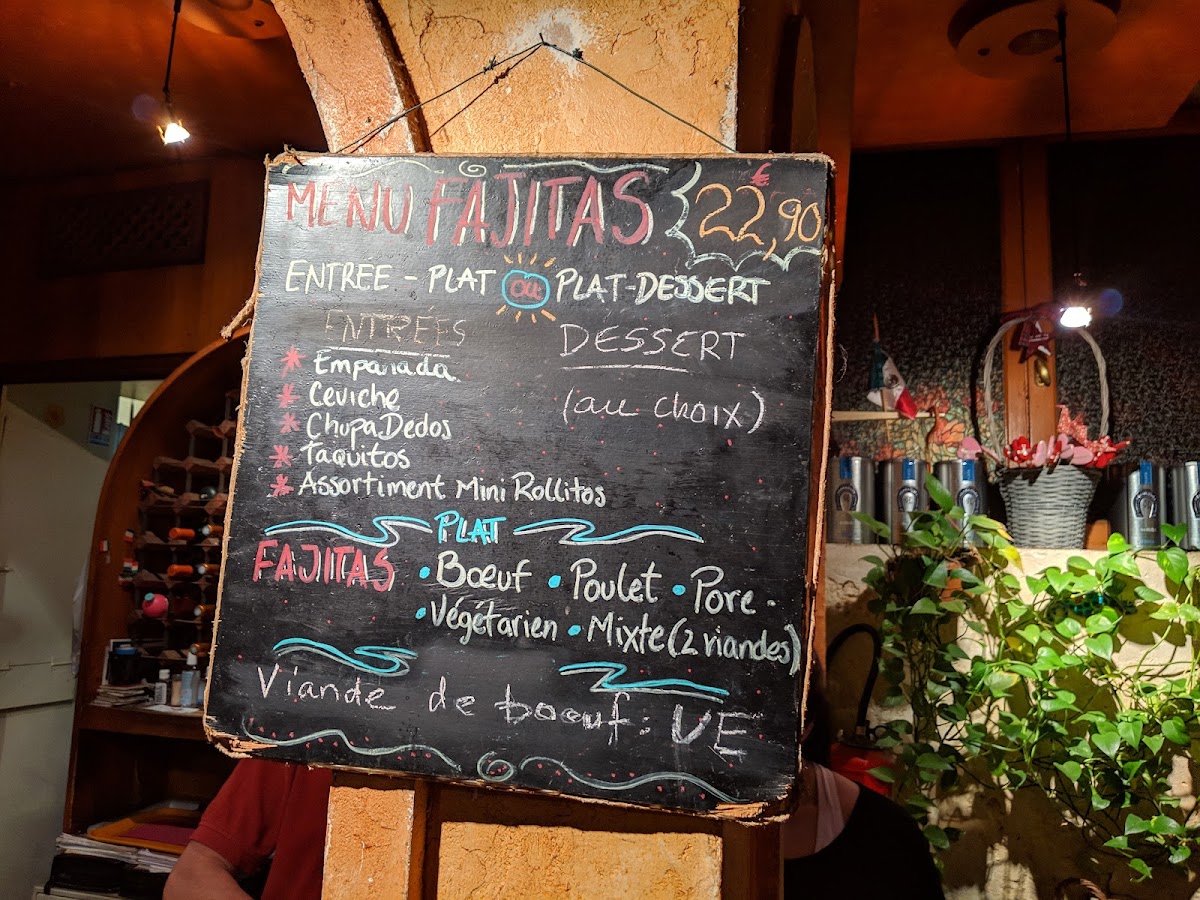 MENU FAJITAS 22,90 €
ENTREE - PLAT OU PLAT-DESSERT
ENTRÉES
DESSERT
* Empanada
(au choix)
* Ceviche
* ChupaDedos
* Taquitos
* Assortiment Mini Rollitos
PLAT
FAJITAS • Bœuf • Poulet • Porc •
• Végétarien • Mixte (2 viandes)
Viande de boeuf : UE